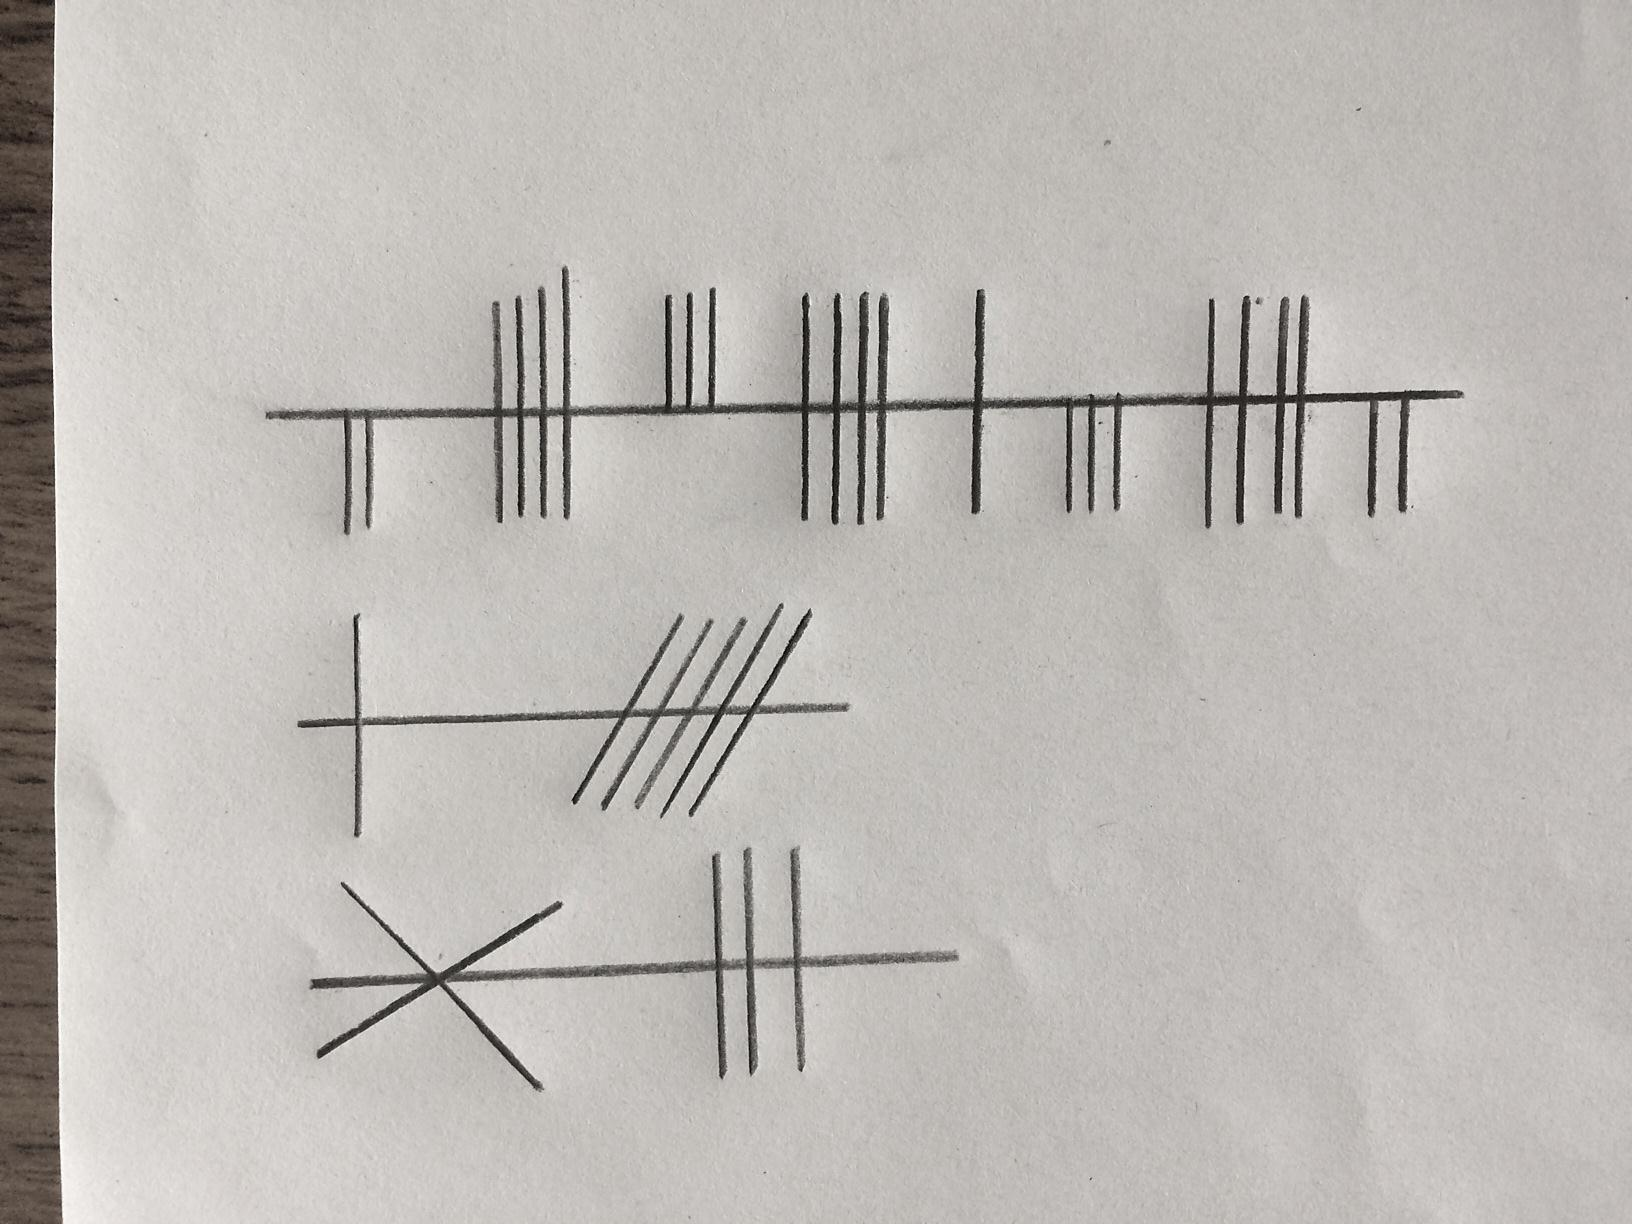 ᚂᚓᚈᚓᚐᚃᚓᚂ
ᚐᚏ
ᚕᚒ